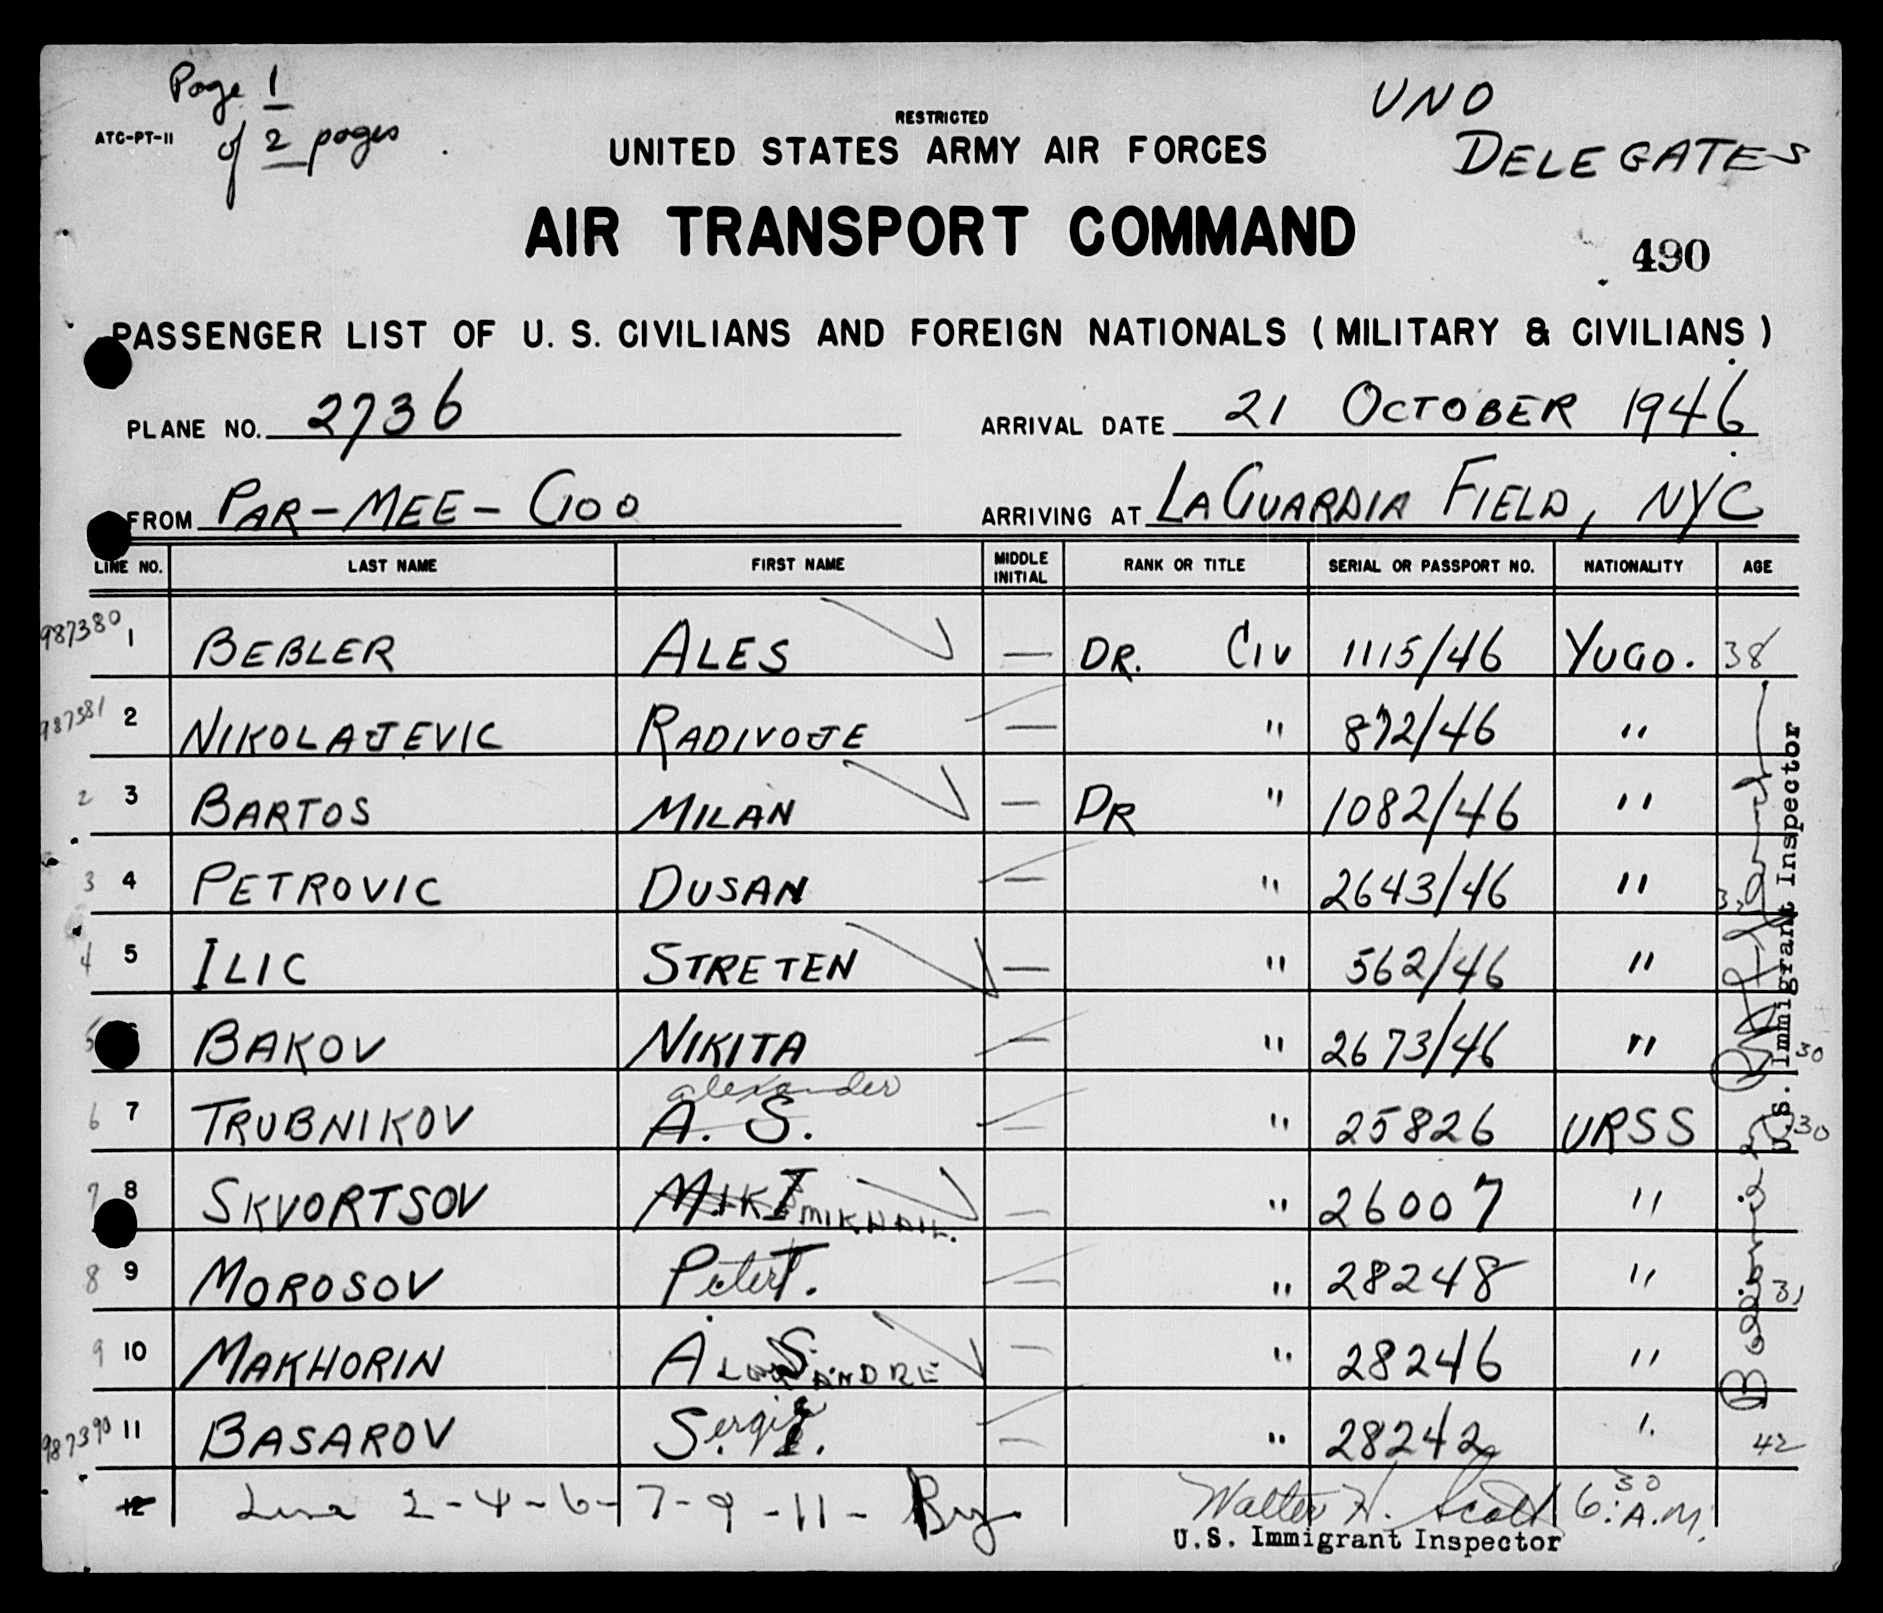 Page 1
of 2 pages
ATC-PT-11
RESTRICTED
UNITED STATES ARMY AIR FORCES
UNO
DELEGATES
AIR TRANSPORT COMMAND
490
PASSENGER LIST OF U. S. CIVILIANS AND FOREIGN NATIONALS (MILITARY & CIVILIANS)
PLANE NO. 2736 ARRIVAL DATE 21 OCTOBER 1946
FROM PAR-MEE-GOO ARRIVING AT LAGUARDIA FIELD, NYC
LINE NO. LAST NAME FIRST NAME MIDDLE INITIAL RANK OR TITLE SERIAL OR PASSPORT NO. NATIONALITY AGE
987380 1 BEBLER ALES — DR. CIV 1115/46 YUGO. 38
987381 2 NIKOLAJEVIC RADIVOJE — " 872/46 "
2 3 BARTOS MILAN — DR " 1082/46 "
3 4 PETROVIC DUSAN — " 2643/46 "
4 5 ILIC STRETEN — " 562/46 "
5 BAKOV NIKITA — " 2673/46 " 30
6 7 TRUBNIKOV alexander A. S. — " 25826 URSS 30
7 8 SKVORTSOV MIKHAIL. — " 26007 "
8 9 MOROSOV Peter T. — " 28248 " 31
9 10 MAKHORIN A — " 28246 "
987390 11 BASAROV Sergie — " 28242 " 42
12 Line 2-4-6-7-9-11-
Walter H. Scott 6:30 A.M.
U.S. Immigrant Inspector
U.S. Immigrant Inspector